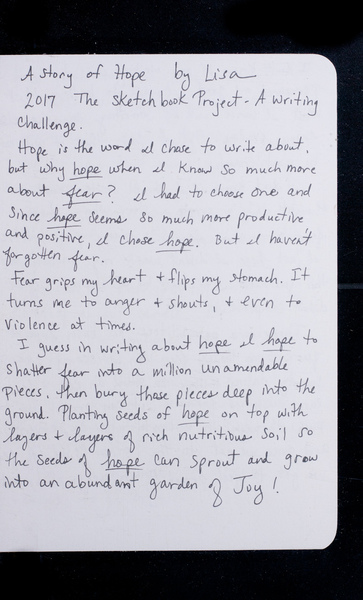 A story of Hope by Lisa
2017 The Sketchbook Project - A writing
challenge.
Hope is the word I chose to write about,
but why hope when I know so much more
about fear? I had to choose one and
since hope seems so much more productive
and positive, I chose hope. But I haven't
forgotten fear.
Fear grips my heart + flips my stomach. It
turns me to anger + shouts, + even to
violence at times.
I guess in writing about hope I hope to
shatter fear into a million unamendable
pieces, then bury those pieces deep into the
ground. Planting seeds of hope on top with
layers + layers of rich nutritious soil so
the seeds of hope can sprout and grow
into an abundant garden of Joy!